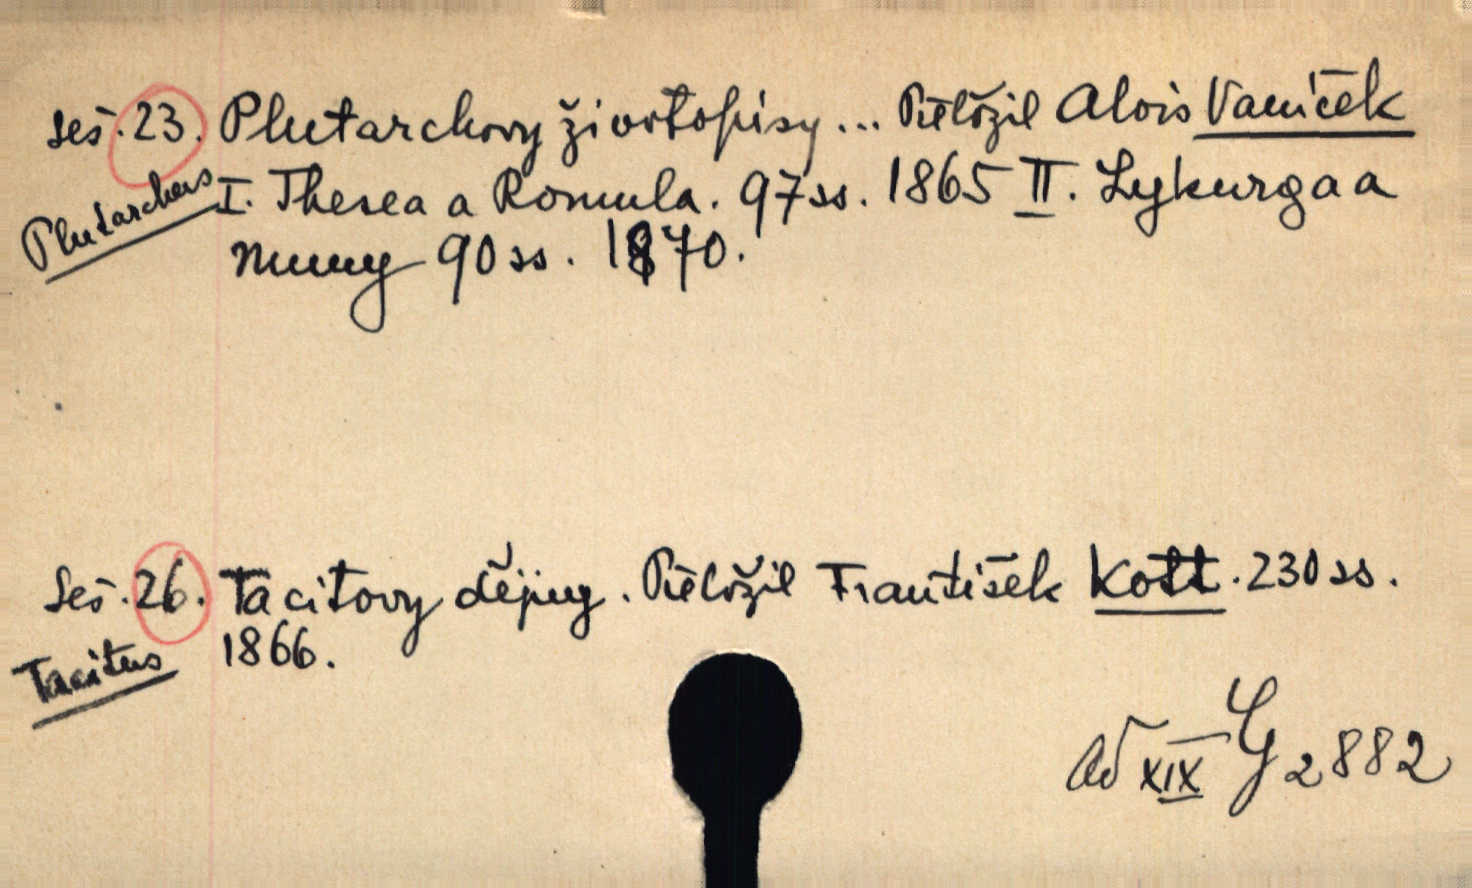 seš. 23. Plutarchovy životopisy... Přeložil Alois Vaníček
Plutarchus I. Thesea a Romula. 97 ss. 1865 II. Lykurga a
Numy 90 ss. 1870.
Seš. 26. Tacitovy dějiny. Přeložil František Kott. 230 ss.
Tacitus 1866.
Ad XIX G 2882